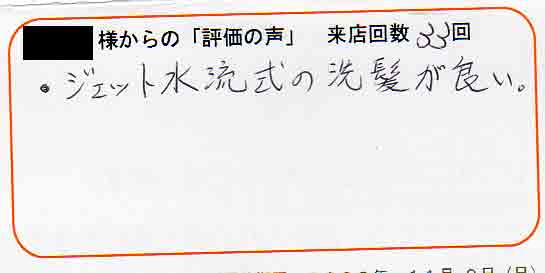 様からの「評価の声」 来店回数 33回
・ジェット水流式の洗髪が良い。